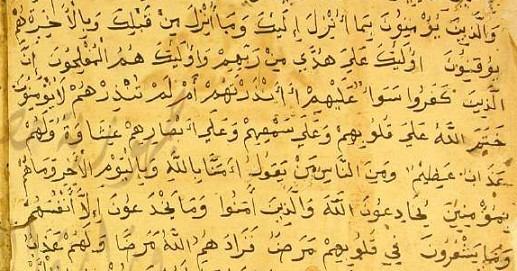 وَالَّذِينَ يُؤْمِنُونَ بِمَا أُنْزِلَ إِلَيْكَ وَمَا أُنْزِلَ مِنْ قَبْلِكَ وَبِالْآخِرَةِ هُمْ
يُوقِنُونَ أُولَئِكَ عَلَى هُدًى مِنْ رَبِّهِمْ وَأُولَئِكَ هُمُ الْمُفْلِحُونَ إِنَّ
الَّذِينَ كَفَرُوا سَوَاءٌ عَلَيْهِمْ أَأَنْذَرْتَهُمْ أَمْ لَمْ تُنْذِرْهُمْ لَا يُؤْمِنُونَ
خَتَمَ اللَّهُ عَلَى قُلُوبِهِمْ وَعَلَى سَمْعِهِمْ وَعَلَى أَبْصَارِهِمْ غِشَاوَةٌ وَلَهُمْ
عَذَابٌ عَظِيمٌ وَمِنَ النَّاسِ مَنْ يَقُولُ آمَنَّا بِاللَّهِ وَبِالْيَوْمِ الْآخِرِ وَمَا هُمْ
بِمُؤْمِنِينَ يُخَادِعُونَ اللَّهَ وَالَّذِينَ آمَنُوا وَمَا يَخْدَعُونَ إِلَّا أَنْفُسَهُمْ
وَمَا يَشْعُرُونَ فِي قُلُوبِهِمْ مَرَضٌ فَزَادَهُمُ اللَّهُ مَرَضًا وَلَهُمْ عَذَابٌ